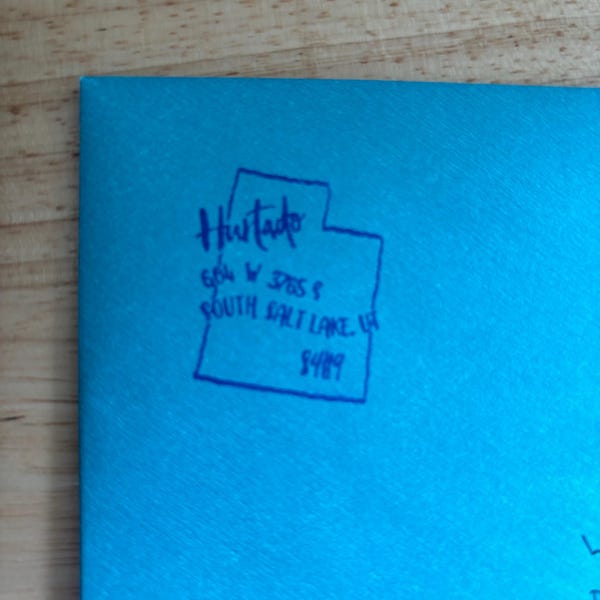 Hurtado
664 W 3765 S
SOUTH SALT LAKE, UT
84119